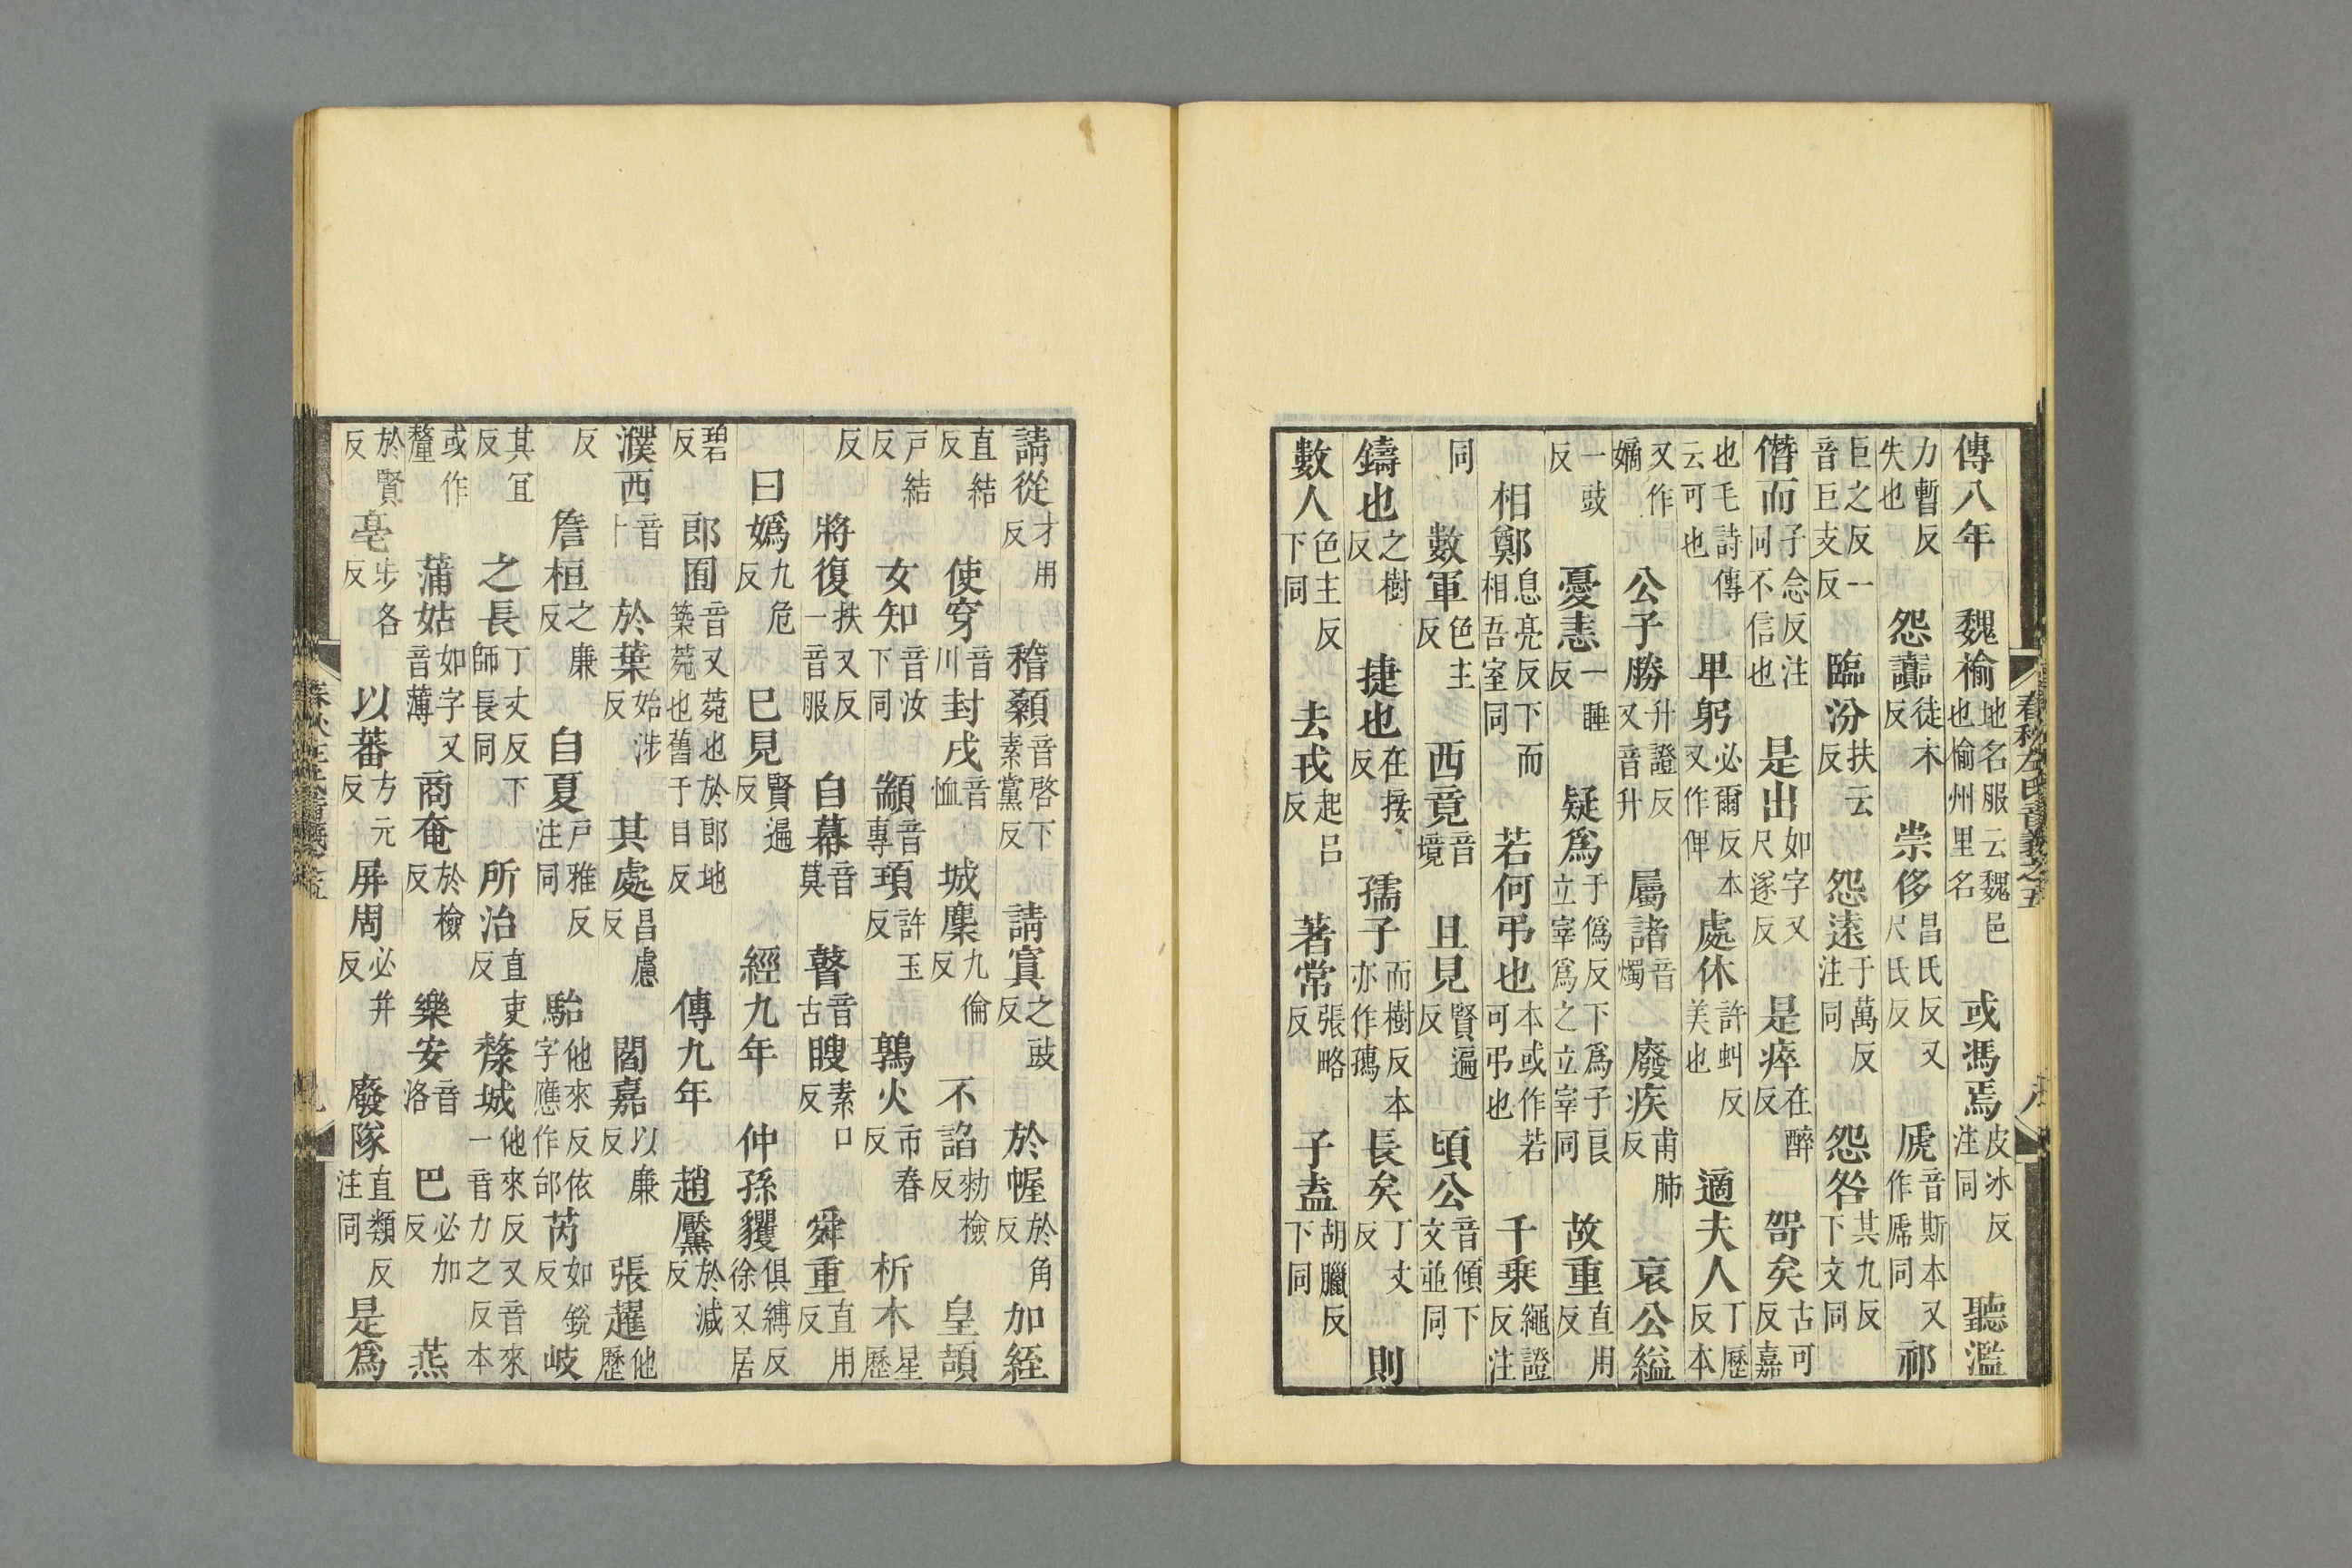 傳八年 魏榆地名服云魏邑也偷州里名 或馮焉皮冰反注同 聽濫
力暫反失也 怨讟徒木反 崇侈昌氏反又尺氏反 虒音斯本又作俿同 祁
巨之反一音巨支反 臨汾扶云反 怨遠于萬反注同 怨咎其九反下文同
僭而子念反注同不信也 是出如字又尺遂反 是瘁在醉反 哿矣古可反嘉
也毛詩傳云可也 卑躬必爾反本又作俾 處休許虯反美也 適夫人丁歷反本
又作嫡 公子勝升證反又音升 屬諸音燭 廢疾甫肺反 哀公縊
一豉反 憂恚一睡反 疑為于偽反下為子良立宰為之立宰同 故重直用反
相鄭息亮反下而相吾室同 若何弔也本或作若可弔也 千乘繩證反注
同 數軍色主反 西竟音境 且見賢遍反 頃公音傾下文並同
鑄也之樹反 捷也在接反 孺子而樹反本亦作㺠 長矣丁丈反 則
數人色主反下同 去戎起呂反 著常張略反 子盍胡臘反下同
春秋左氏音義之五 八
請從才用反 稽顙音啓下素黨反 請寘之豉反 於幄於角反 加絰
直結反 使穿音川 封戌音恤 城麇九倫反 不諂勑檢反 皇頡
戶結反 女知音汝下同 顓音專 頊許玉反 鶉火市春反 析木星歷
反 將復扶又反一音服 自幕音莫 瞽音古 瞍素口反 舜重直用反
曰嬀九危反 已見賢遍反 經九年 仲孫貜俱縛反徐又居
碧反 郎囿音又菀也於郎地築菀也舊于目反 傳九年 趙黶於減反
濮西音卜 於葉始涉反 其處昌慮反 閻嘉以廉反 張趯他歷
反 詹桓之廉反 自夏戶雅反注同 駘他來反依字應作邰 芮如銳反 岐
其宜反 之長丁丈反下師長同 所治直吏反 斄城他來反又音來一音力之反本
或作釐 蒲姑如字又音薄 商奄於檢反 樂安音洛 巴必加反 燕
於賢反 亳步各反 以蕃方元反 屏周必幷反 廢隊直類反注同 是為
春秋左氏音義之五 九